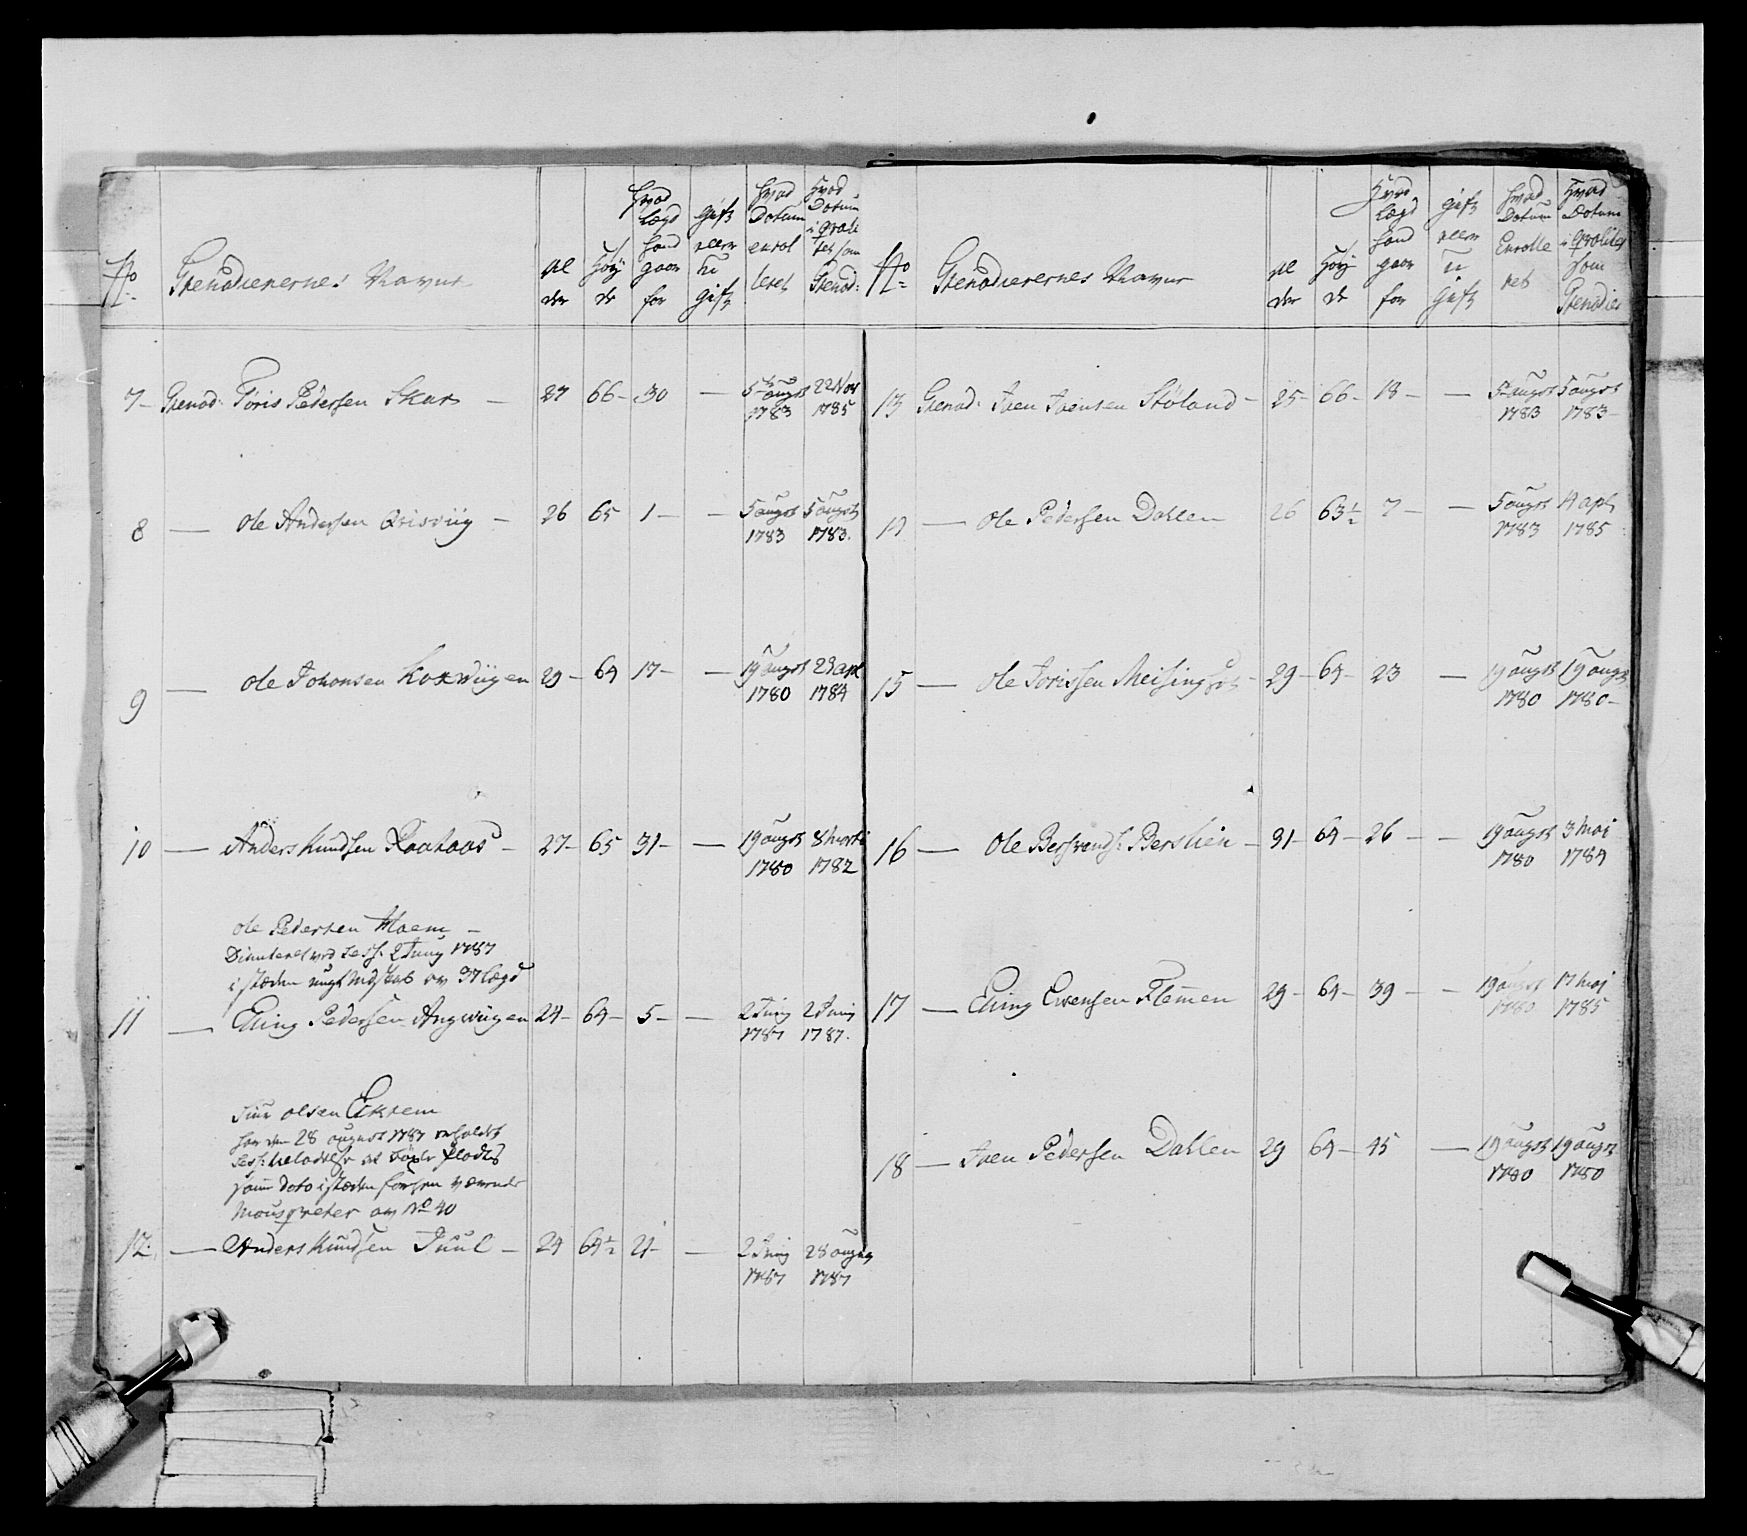 No
Grenadierernes Navne
Al
der
Høy
de
hvad
Lægd
hand
gaar
for
gift
eller
u
gift
hvad
Datum
enrol
leret
Hvad
Datum
i qvali
tet som
Grenad:
7 — Grenad: Joris Pedersen Skar — 27 66 — 30 — 5 augst 1783 22 Nov 1785
8 — Ole Andersen Qvisviig — 26 65 1 — — 5 augst 1783 5 augst 1783.
9 — Ole Johansen Koxwiigen 29 — 64 17 — — 19 augst 1780 23 apl 1784
10 — Anders Knudsen Raahaas — 27 — 65 31 — — 19 augst 1780 8 marti 1782
Ole Pedersen Moem —
Dimiteret ved Sess: 2 Juny 1787
i stæden af 37 Lægd
11 — Elling Pedersen Angwiigen 24 — 64 — 5 — — 2 Juny 1787 2 Juny 1787.
Siur Olsen Eikrem
har den 28 august 1787 erholdet
Sess: at
samme dato i stæden forhen værende
Mousqveter af No 40
12. — Anders Knudsen Juul — 24 64½ 21 — — 2 Juny 1787 28 augst 1787
No
Grenadierernes Navne
Al
der
Høy
de
Hvad
Lægd
hand
gaar
for
gift
eller
u
gift
hvad
Datum
Enrolle
ret
Hvad
Datum
i qvalitet
som
Grenadier
13 Grenad: Joen Joensen Støland — 25 — 66 — 18 — — 5 augst 1783 5 augst 1783 —
14 — Ole Pedersen Dahlen 26 63½ 7 — — 5 augst 1783 14 apl 1785
15 — Ole Jorissen Meisingset — 29 — 64 — 23 — 19 augst 1780 19 augst 1780 —
16 — Ole Bersvends: Berslien — 31 — 64 — 26 — — 19 augst 1780 3 maj 1784
17 — Elling Ewensen Flemmen 29 — 64 — 39 — — 19 augst 1780 17 maj 1785
18 — Joen Pedersen Dahlen 29 64 — 45 — 19 augst 1780 19 augst 1780